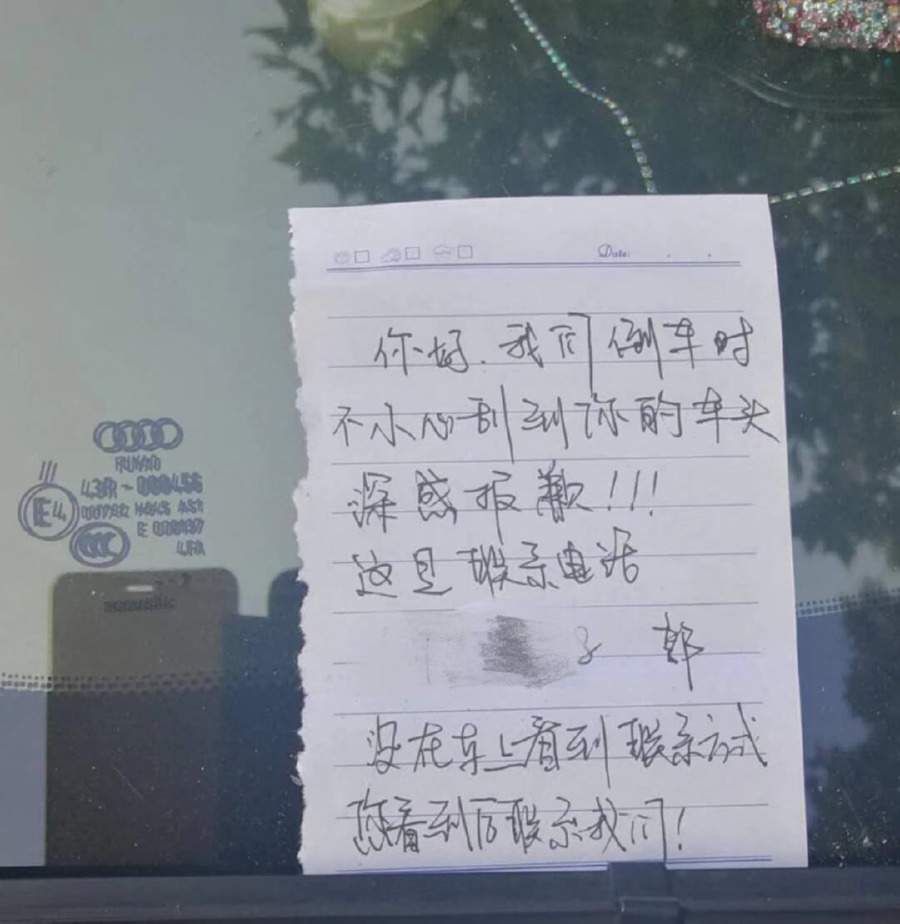 Date:
你好. 我们倒车时
不小心刮到你的车头
深感报歉!!!
这是联系电话
郭
没在车上看到联系方式
您看到后联系我们!
E4
43R-000456
CCC